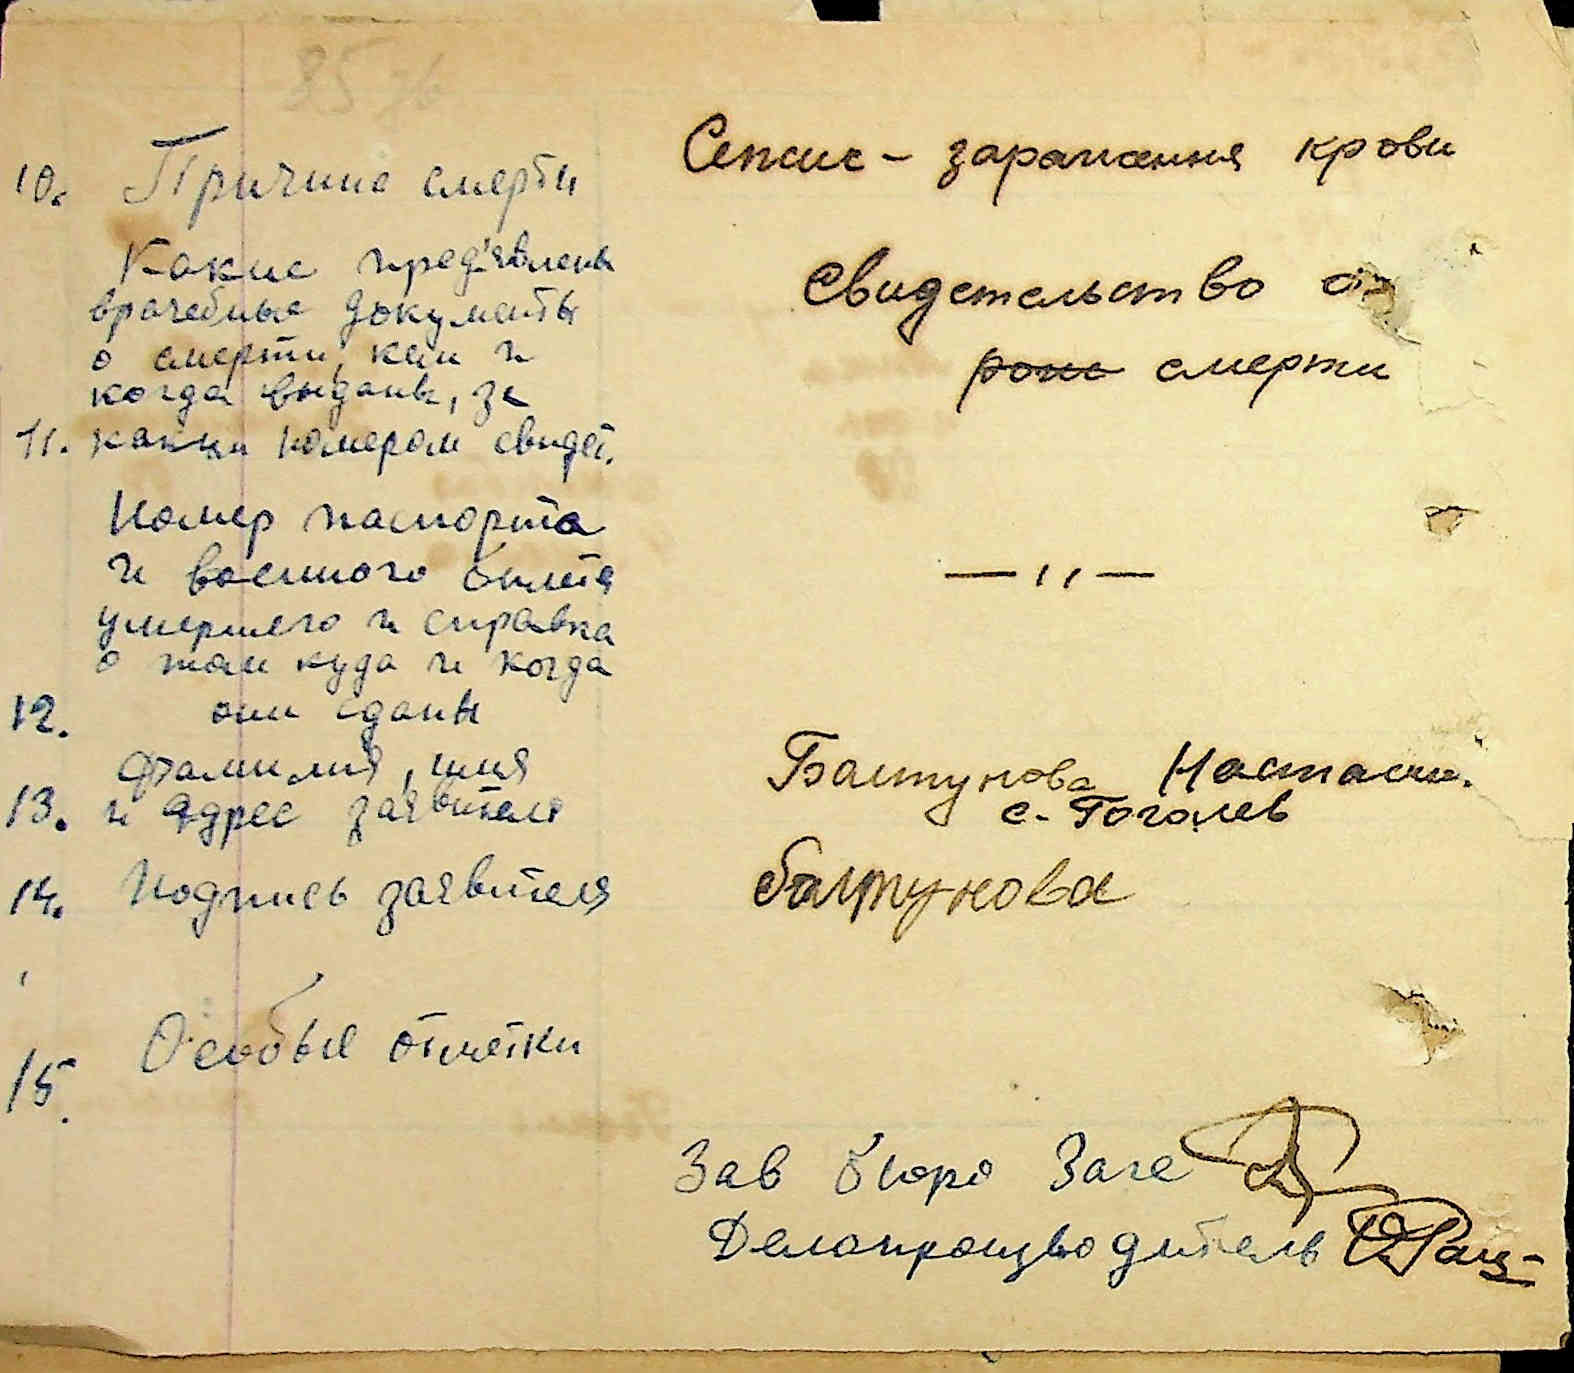 10. Причина смерти
Сепсис - зараження крови
Какие пред'явлены
врачебные документы
о смерти, кем и
когда выданы, за
11. каким номером свидет.
Свидетельство
смерти
Номер паспорта
и военного билета
умершего и справка
о том куда и когда
12. они сданы
— ,, —
Фамилия, имя
13. и адрес заявителя
Балтунова Настасия.
с. Гоголев
14. Подпись заявителя
балтунова
15. Особые отметки
Зав бюро Загс
Делопроизводитель